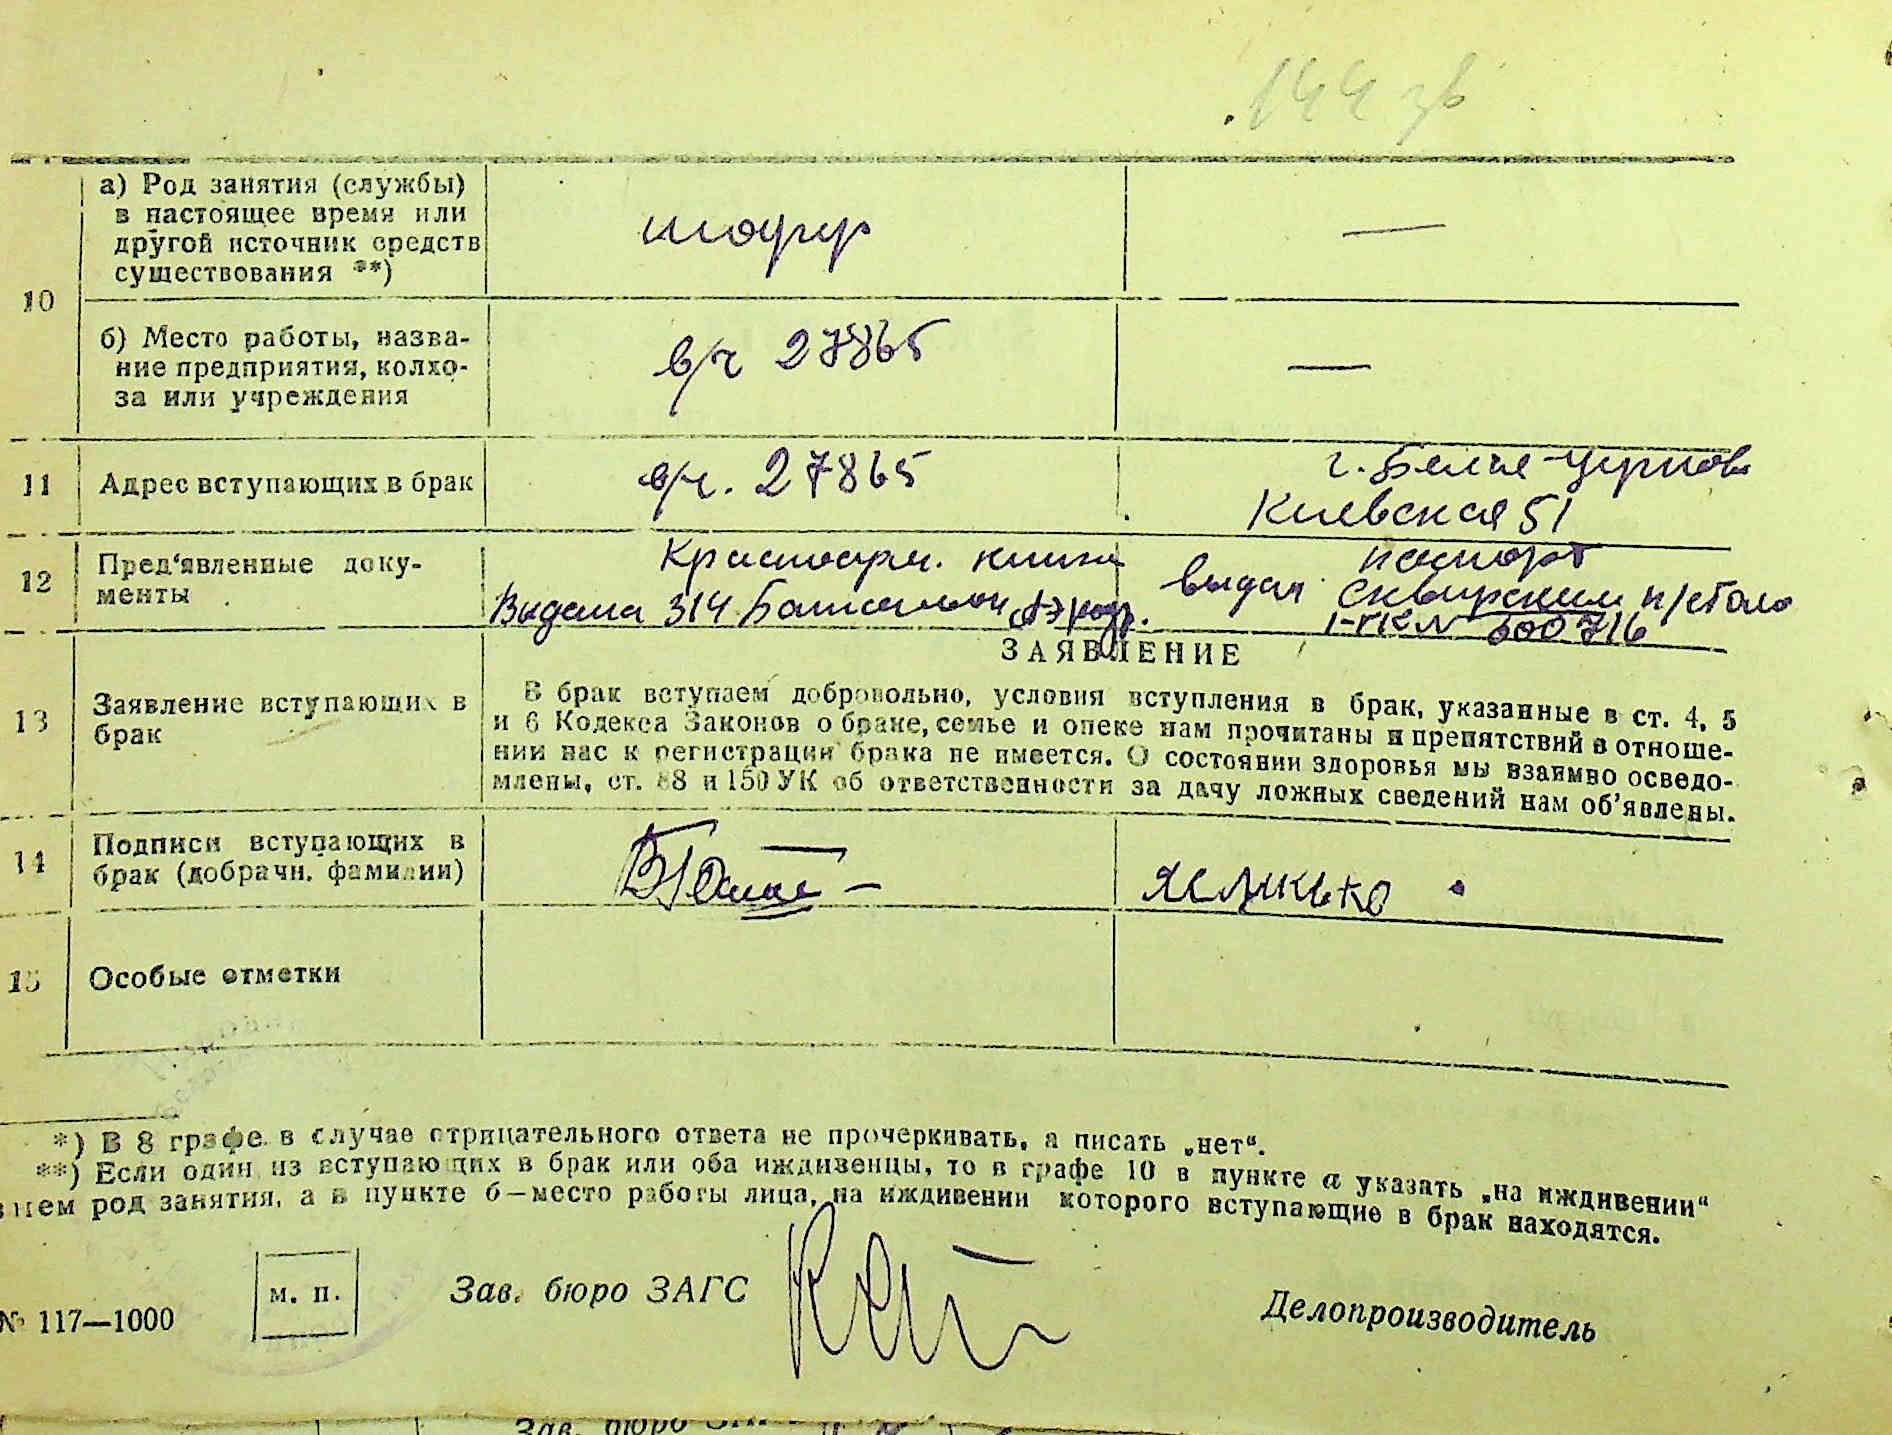 144 зв
10
а) Род занятия (службы)
в настоящее время или
другой источник средств
существования **)
шофер
—
б) Место работы, назва-
ние предприятия, колхо-
за или учреждения
в/ч 27865
—
11
Адрес вступающих в брак
в/ч. 27865
г. Белая-Церковь
Киевская 51
12
Пред'явленные доку-
менты
Красноарм. книжк
Выдана 314 Батальон
паспорт
выдан Сквирским п/столо
№ 600716
ЗАЯВЛЕНИЕ
13
Заявление вступающих в
брак
В брак вступаем добровольно, условия вступления в брак, указанные в ст. 4, 5
и 6 Кодекса Законов о браке, семье и опеке нам прочитаны и препятствий в отноше-
нии нас к регистрации брака не имеется. О состоянии здоровья мы взаимно осведо-
млены, ст. 88 и 150 УК об ответственности за дачу ложных сведений нам об'явлены.
14
Подписи вступающих в
брак (добрачн. фамилии)
15
Особые отметки
*) В 8 графе в случае отрицательного ответа не прочеркивать, а писать „нет“.
**) Если один из вступающих в брак или оба иждивенцы, то в графе 10 в пункте а указать „на иждивении“
нем род занятия, а в пункте б—место работы лица, на иждивении которого вступающие в брак находятся.
м. п.
Зав. бюро ЗАГС
Делопроизводитель
№ 117—1000
Зав. бюро